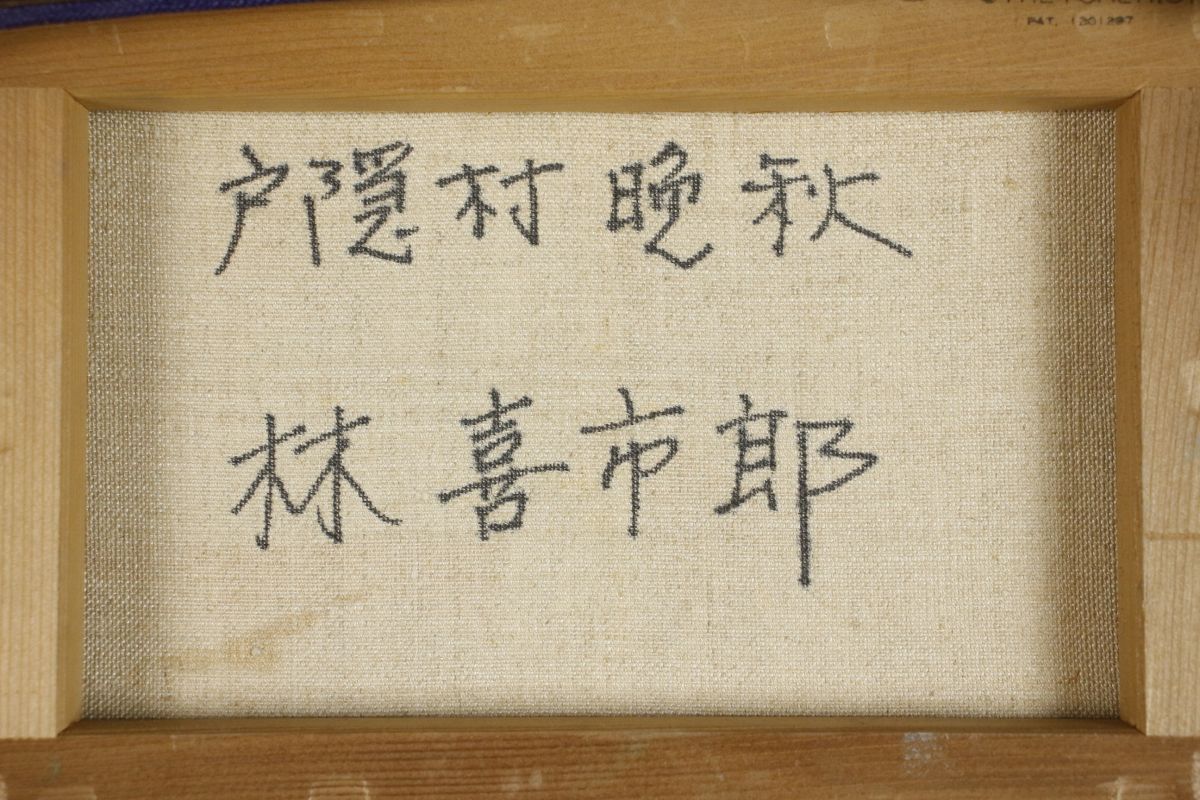 PAT. 1201297
戸隠村晩秋
林喜市郎